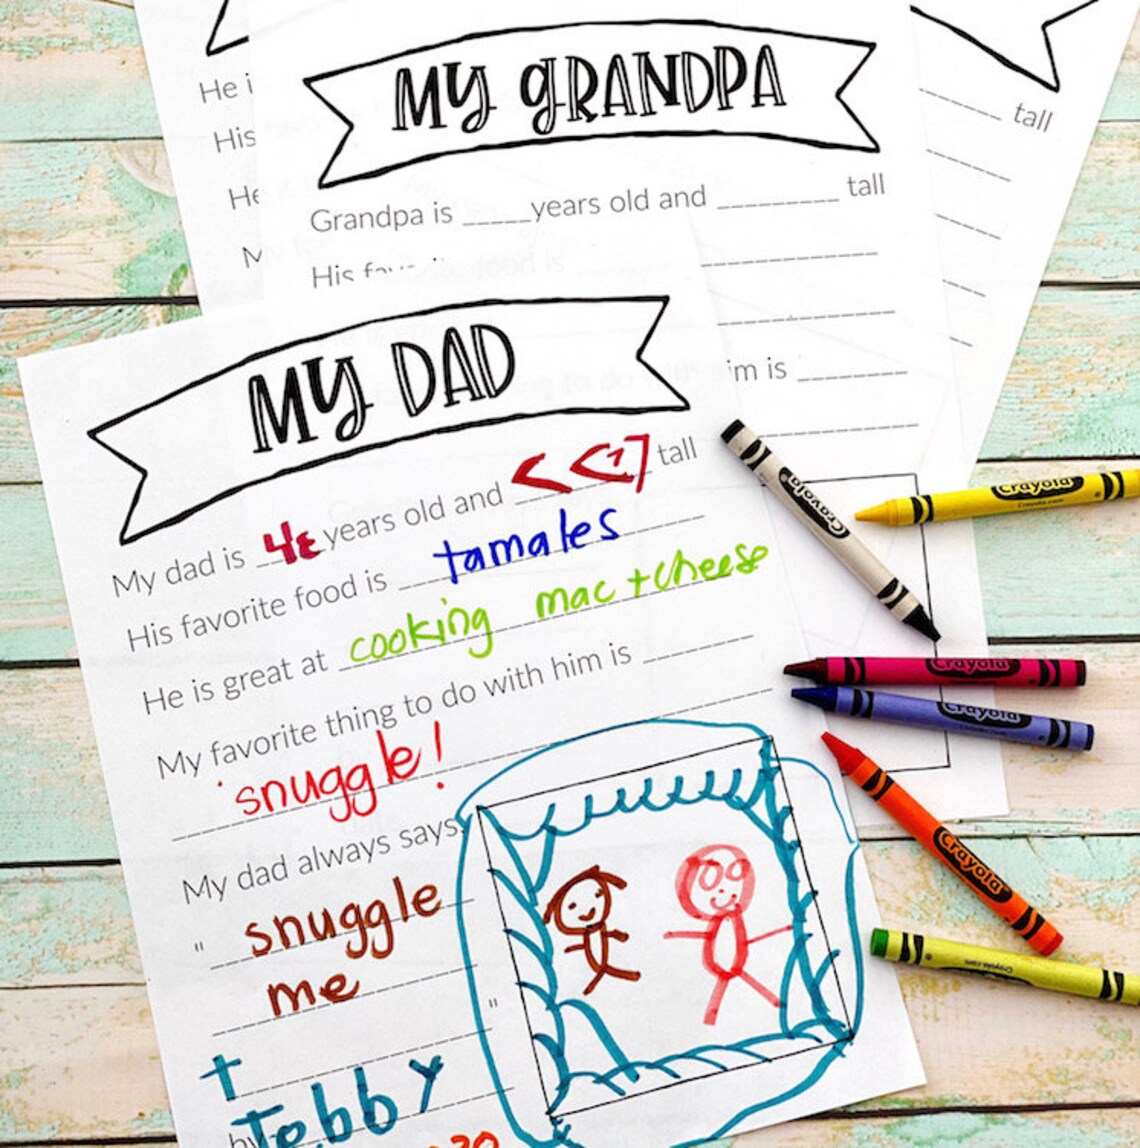 He i
His
He
M
tall
MY GRANDPA
Grandpa is _____years old and _________ tall
His
im is _________
MY DAD
My dad is 48 years old and tall
His favorite food is tamales
He is great at cooking mac + cheese
My favorite thing to do with him is ________
snuggle!
My dad always says:
" snuggle
me "
by Tobby
Crayola
Crayola
Crayola.com
Crayola
Crayola
Crayola
Crayola.com